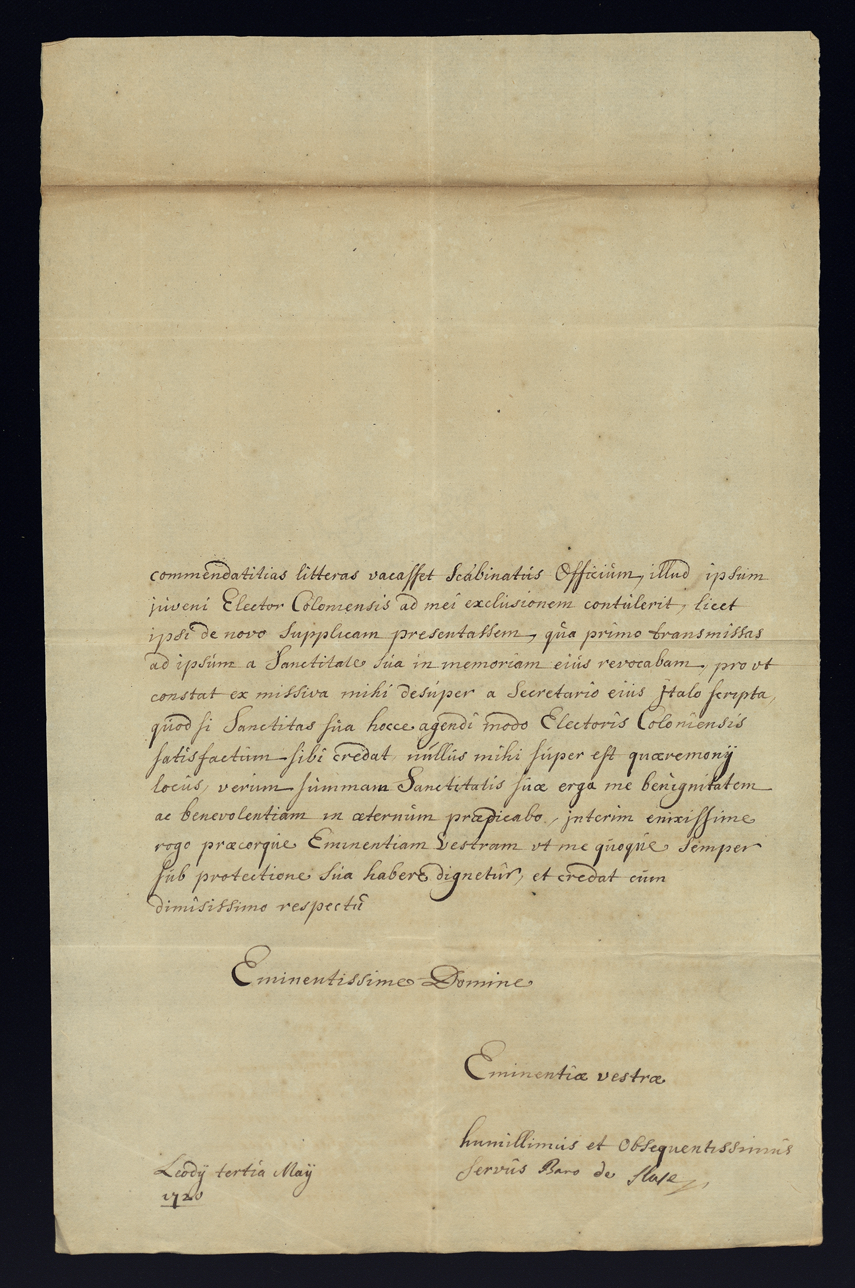 commendatitias litteras vacasset Scabinatus Officium, illud ipsum
juveni Elector Coloniensis ad mei exclusionem contulerit, licet
ipsi de novo supplicam presentassem, qua primo transmissas
ad ipsum a Sanctitate sua in memoriam eius revocabam, pro ut
constat ex missiva mihi desuper a Secretario eius Italo scripta,
quod si Sanctitas sua hocce agendi modo Electoris Coloniensis
satisfactum sibi credat, nullus mihi super est quæremonÿ
locus, verum summam Sanctitatis suæ erga me benignitatem
ac benevolentiam in æternum prædicabo, interim enixissime
rogo præcorque Eminentiam Vestram ut me quoque semper
sub protectione sua habere dignetur, et credat cum
dimisissimo respectu
Eminentissime Domine
Eminentiæ vestræ
humillimus et Obsequentissimus
servus Baro de Sluse
Leodÿ tertia Maÿ
1720